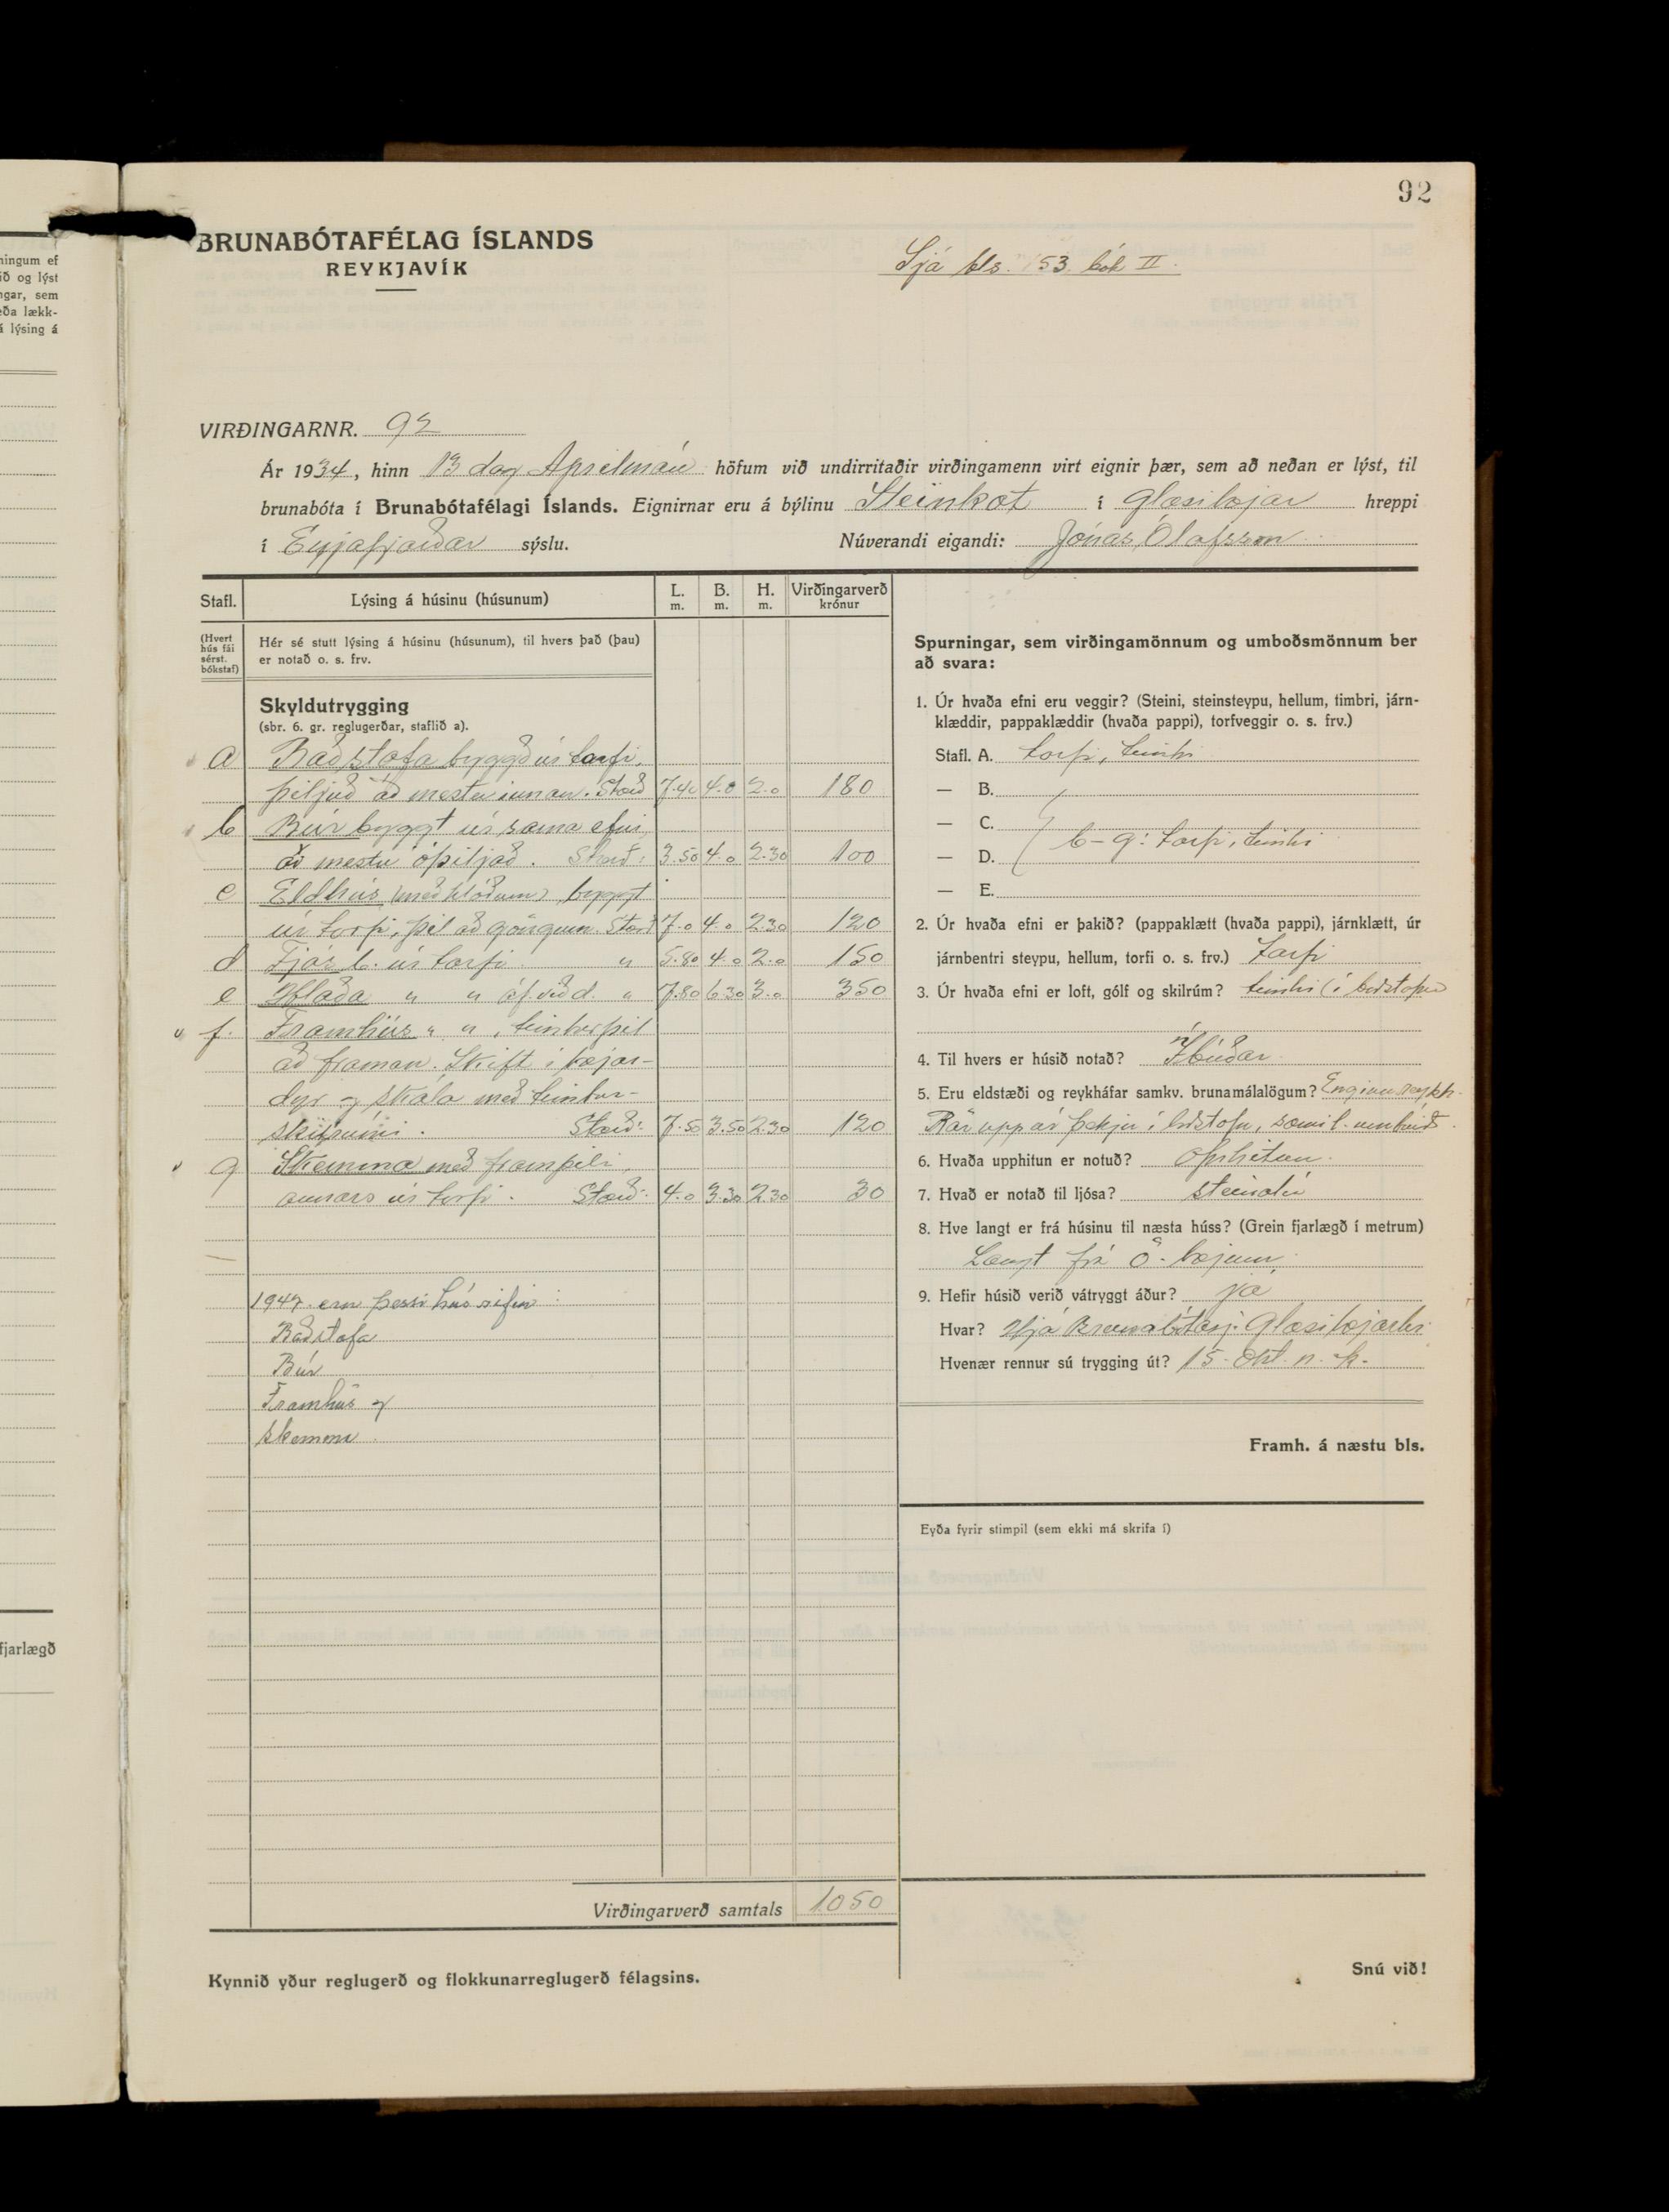 92
BRUNABÓTAFÉLAG ÍSLANDS
REYKJAVÍK
Sjá bls. 153. bók II.
VIRÐINGARNR. 92
Ár 1934, hinn 13 dag Aprílmán höfum við undirritaðir virðingamenn virt eignir þær, sem að neðan er lýst, til
brunabóta í Brunabótafélagi Íslands. Eignirnar eru á býlinu Steinkot í Glæsibæjar hreppi
í Eyjafjarðar sýslu. Núverandi eigandi: Jónas Ólafsson
Stafl. Lýsing á húsinu (húsunum) L. m. B. m. H. m. Virðingarverð krónur
(Hvert hús fái sérst. bókstaf)
Hér sé stutt lýsing á húsinu (húsunum), til hvers það (þau)
er notað o. s. frv.
Skyldutrygging
(sbr. 6. gr. reglugerðar, staflið a).
a Baðstofa byggð úr torfi,
þiljuð að mestu innan. Stærð 7.40 4.0 2.0 180
b Búr byggt úr sama efni,
að mestu óþiljað. Stærð: 3.50 4.0 2.30 100
c Eldhús (með hlóðum), byggt
úr torfi, þil að göngum. Stærð 7.0 4.0 2.30 120
d Fjós b. úr torfi. " 5.80 4.0 2.0 150
e Hlaða " " áf. við d. " 7.80 6.30 3.0 350
f. Framhús " ", timburþil
að framan. Skift í bæjar-
dyr og skála með timbur-
skilrúmi. Stærð: 7.50 3.50 2.30 120
g Skemma með framþili,
annars úr torfi. Stærð: 4.0 3.30 2.30 30
1947 eru þessi hús rifin:
Baðstofa
Búr
Framhús og
skemma.
Virðingarverð samtals 1050
Kynnið yður reglugerð og flokkunarreglugerð félagsins.
Spurningar, sem virðingamönnum og umboðsmönnum ber
að svara:
1. Úr hvaða efni eru veggir? (Steini, steinsteypu, hellum, timbri, járn-
klæddir, pappaklæddir (hvaða pappi), torfveggir o. s. frv.)
Stafl. A. torfi, timbri
— B.
— C.
b-g: torfi, timbri
— D.
— E.
2. Úr hvaða efni er þakið? (pappaklætt (hvaða pappi), járnklætt, úr
járnbentri steypu, hellum, torfi o. s. frv.) Torfi
3. Úr hvaða efni er loft, gólf og skilrúm? timbri (í baðstofu
4. Til hvers er húsið notað? Íbúðar
5. Eru eldstæði og reykháfar samkv. brunamálalögum? Enginn reykh.
Rör upp úr þekju í baðstofu, sæmil. umbúið.
6. Hvaða upphitun er notuð? Ofnhitun.
7. Hvað er notað til ljósa? steinolía
8. Hve langt er frá húsinu til næsta húss? (Grein fjarlægð í metrum)
Langt frá ö. bæjum.
9. Hefir húsið verið vátryggt áður? já
Hvar? Hjá Brunabótasj. Glæsibæjarhr.
Hvenær rennur sú trygging út? 15. Okt. n. k.
Framh. á næstu bls.
Eyða fyrir stimpil (sem ekki má skrifa í)
Snú við!
ningum ef
ið og lýst
ngar, sem
eða lækk-
á lýsing á
fjarlægð